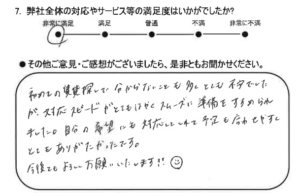 7. 弊社全体の対応やサービス等の満足度はいかがでしたか?
非常に満足 満足 普通 不満 非常に不満
● その他ご意見・ご感想がございましたら、是非ともお聞かせください。
初めての 探しで 分からないことも多く とても 不安でした
が、対応スピードがとてもはやく スムーズに 準備を すすめられ
ました。自分の 希望にも 対応してくれて 予定も 合わせやすく
とてもありがたかったです。
今後ともよろしくお願いいたします!!